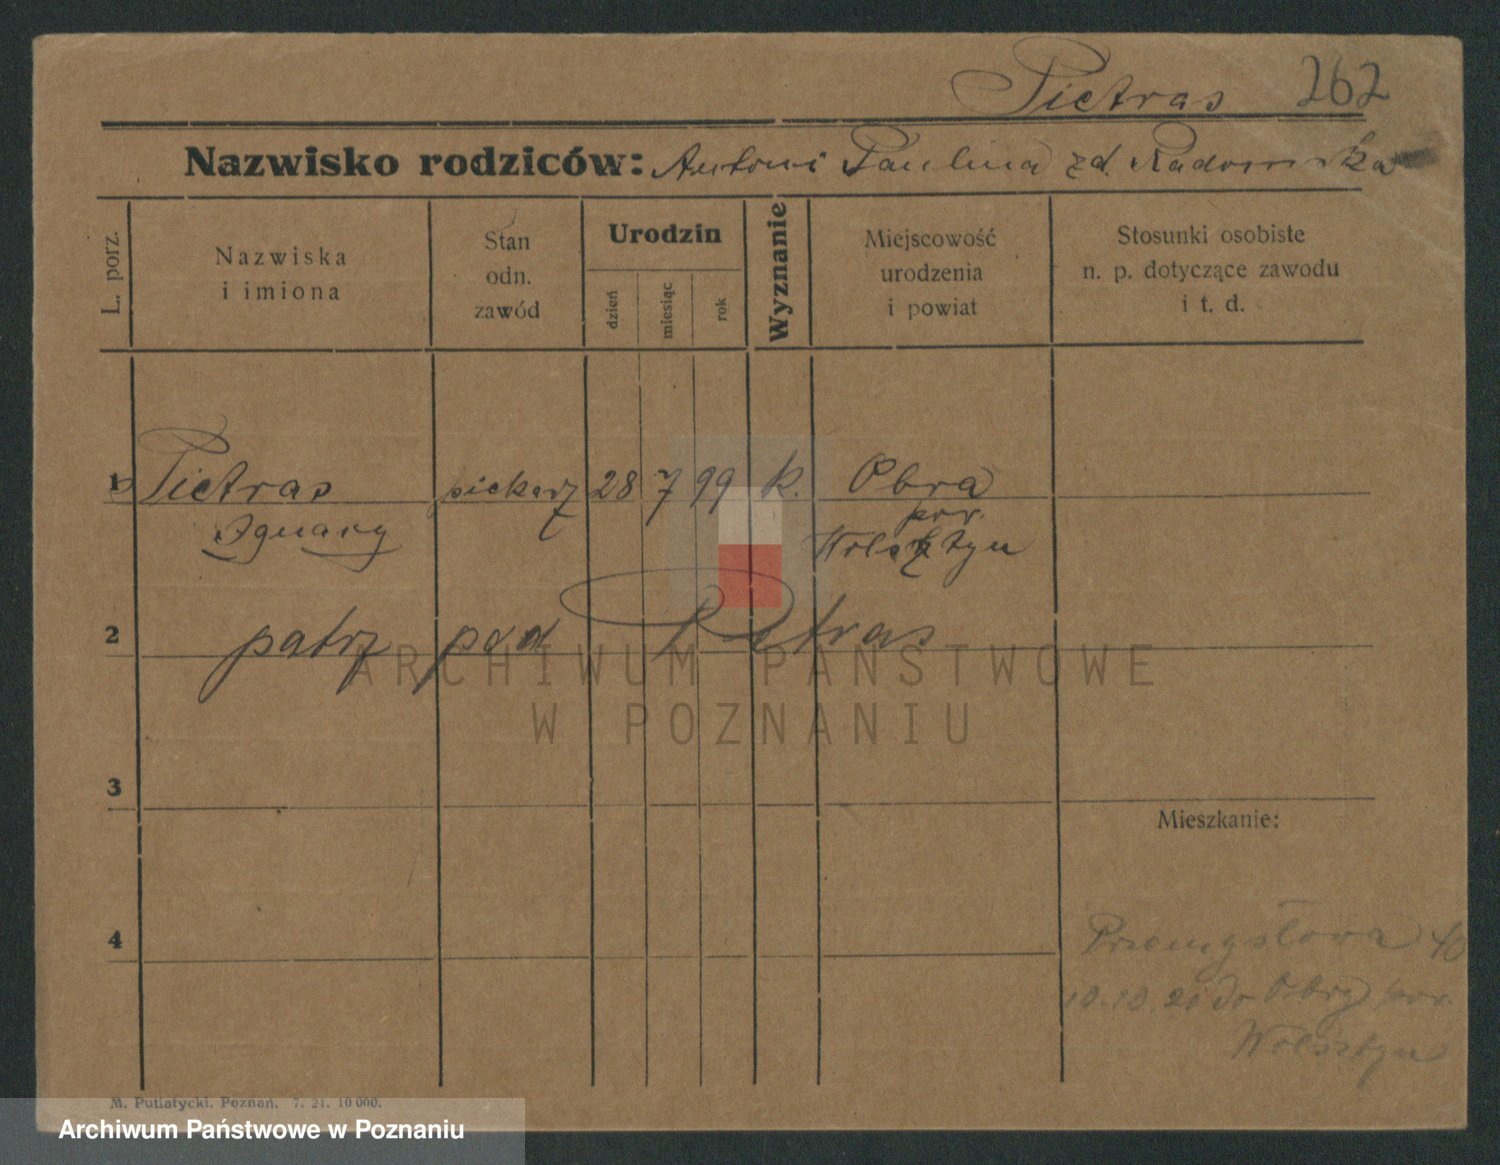 Pietras 262
Nazwisko rodziców: Antoni Paulina zd. Radomska
L. porz.
Nazwiska
i imiona
Stan
odn.
zawód
Urodzin
dzień
miesiąc
rok
Wyznanie
Miejscowość
urodzenia
i powiat
Stosunki osobiste
n. p. dotyczące zawodu
i t. d.
1 Pietras piekarz 28 7 99 k. Obra
Ignacy pow.
Wolsztyn
2 patrz pod Petras
ARCHIWUM PAŃSTWOWE
W POZNANIU
3
Mieszkanie:
4 Przemysłowa 40
10.10.21 do Obry pow.
Wolsztyn
M. Putiatycki. Poznań. 7. 21. 10 000.
Archiwum Państwowe w Poznaniu